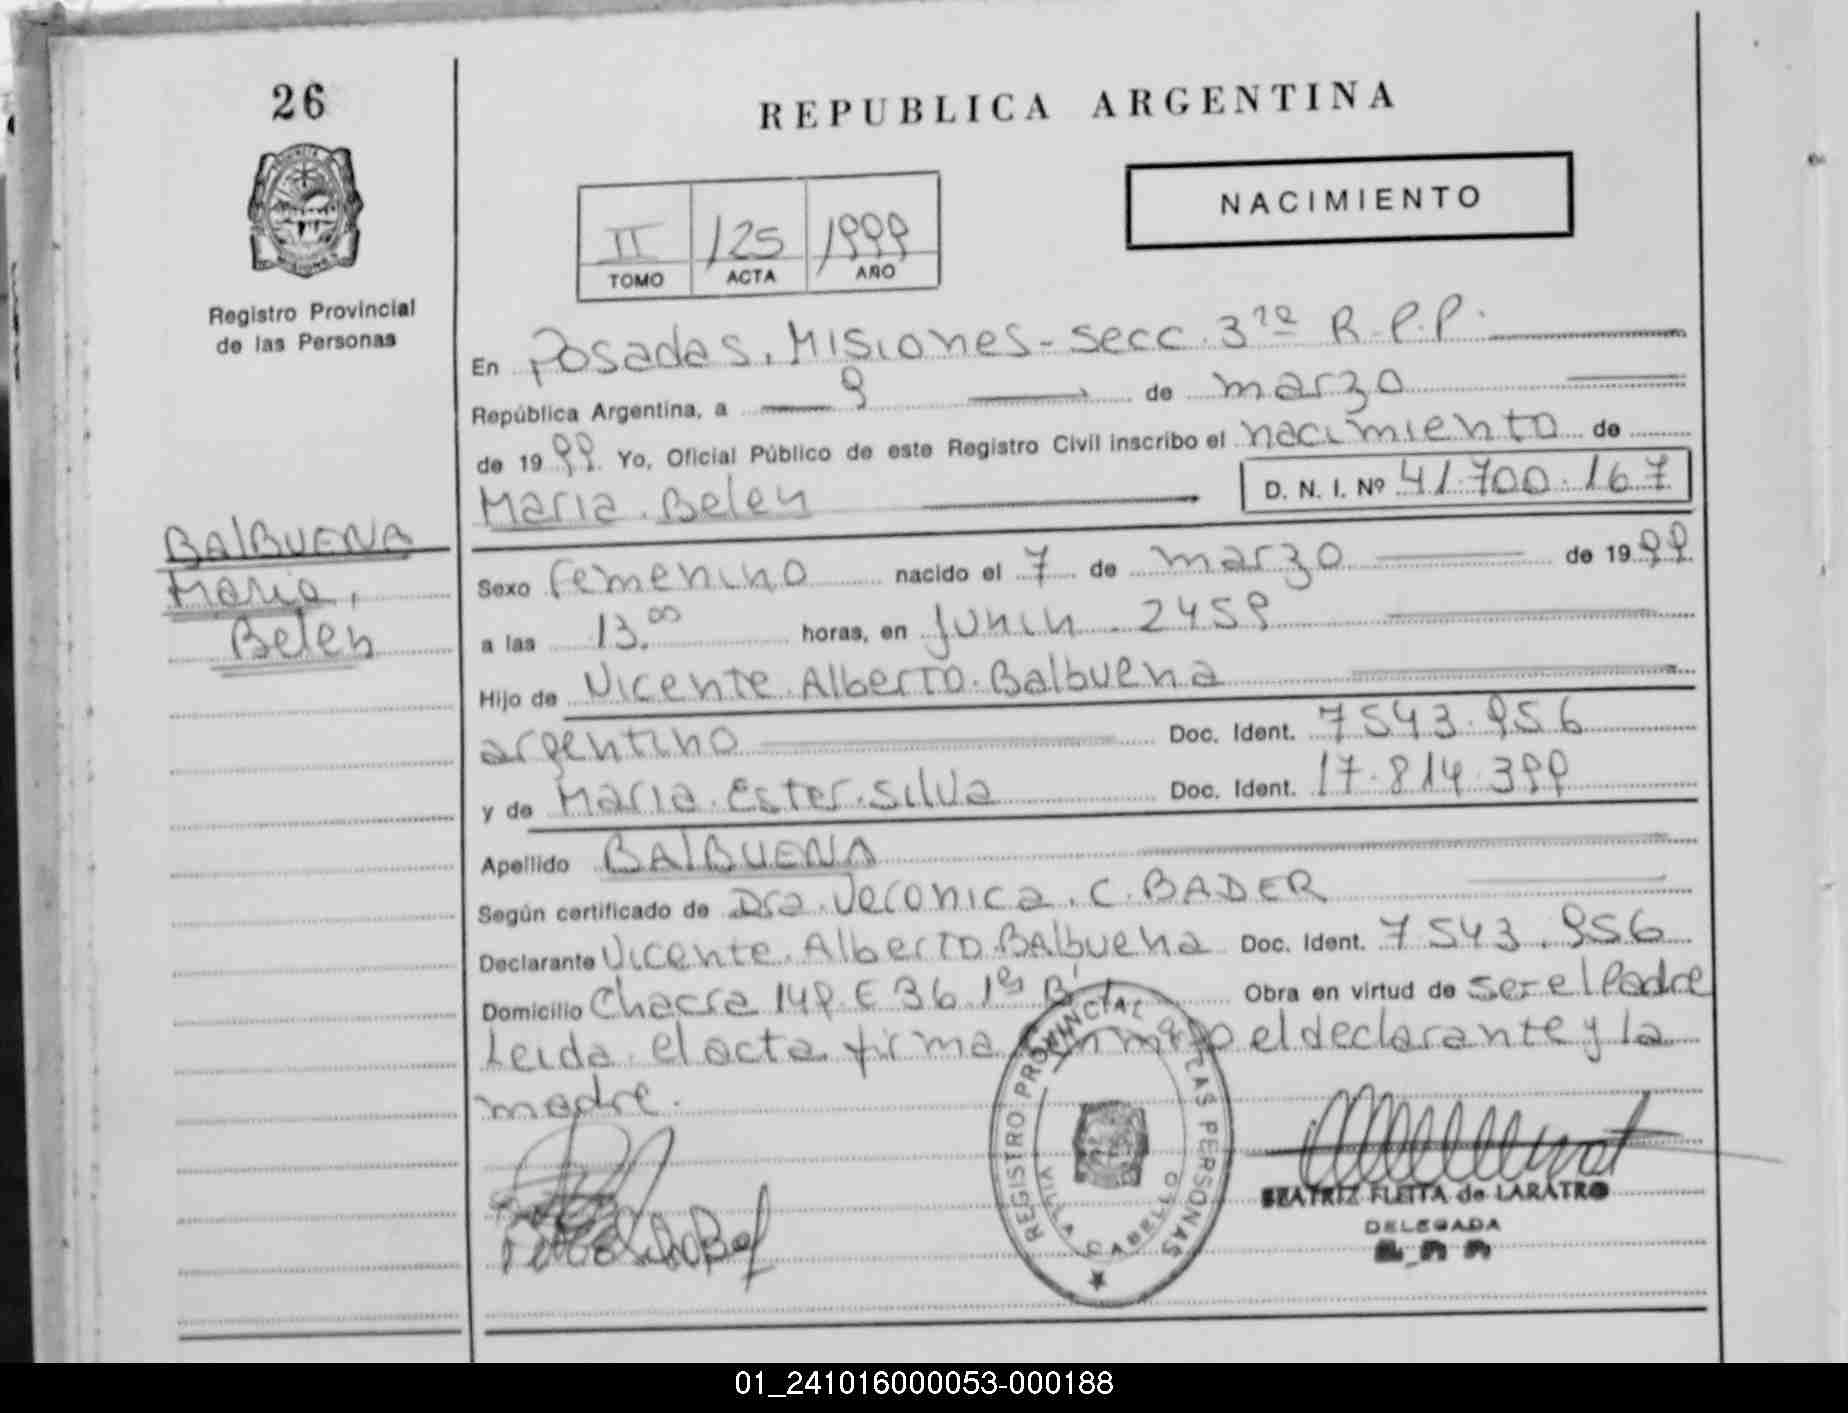 26
REPUBLICA ARGENTINA
NACIMIENTO
II 125 1999
TOMO ACTA AÑO
Registro Provincial
de las Personas
En Posadas, Misiones - secc. 3ra R.P.P.
República Argentina, a 9 de marzo
de 1999. Yo, Oficial Público de este Registro Civil inscribo el nacimiento de
Maria Belen D. N. I. Nº 41.700.167
BAlBUENA
Maria,
Belen
Sexo femenino nacido el 7 de marzo de 1999
a las 13.00 horas, en Junin 2459
Hijo de Vicente Alberto Balbuena
argentino Doc. Ident. 7543.956
y de Maria Ester Silva Doc. Ident. 17.814.399
Apellido BAlBUENA
Según certificado de Dra. Veronica. C. BADER
Declarante Vicente Alberto BAlbuena Doc. Ident. 7543.956
Domicilio Chacra 149 E 36 1º B Obra en virtud de ser el Padre
Leida el acta firma conmigo el declarante y la
madre.
REGISTRO PROVINCIAL DE LAS PERSONAS
VILLA CABELLO
BEATRIZ FLEITA de LARATRO
DELEGADA
01_241016000053-000188